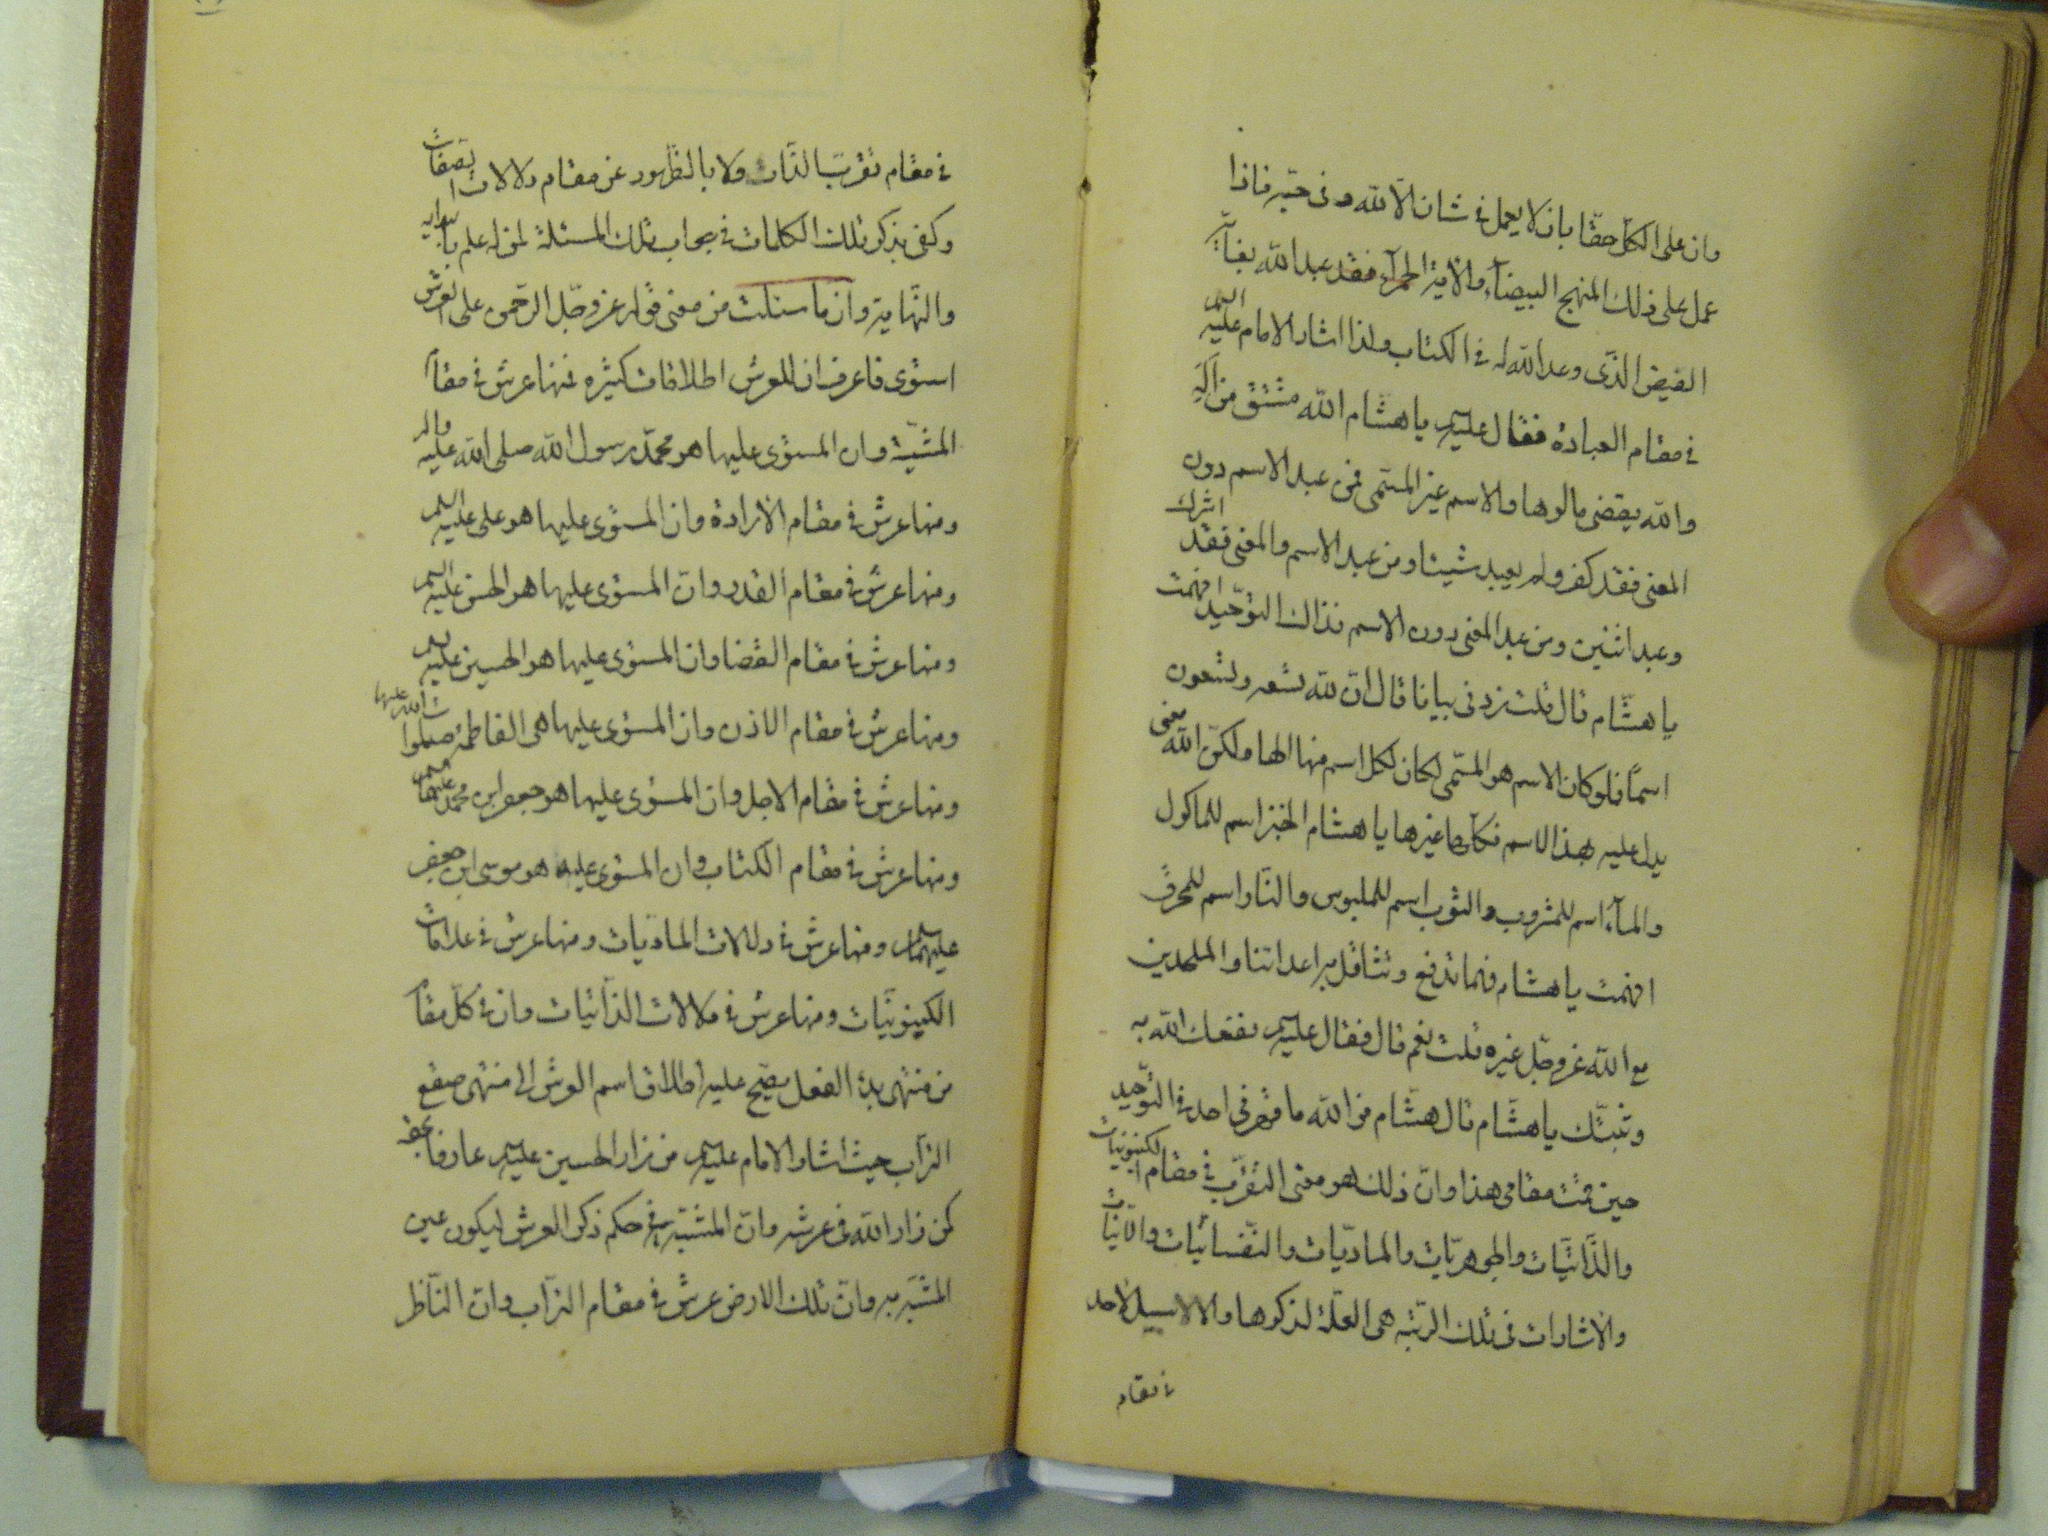 وان على الكل حقا بان لا يعمل في شان الا لله وفى حبّه فاذا
عمل على ذلك المنهج البيضآء والاية الحمرآء فقد عبد الله بغاية
الفيض الذّى وعد الله له في الكتاب ولذا اشار الامام عليه السلم
في مقام العبادة فقال عليه السلم يا هشام الله مشتق من اله
والله يقتضى مالوها والاسم غير المسمّى فمن عبد الاسم دون
المعنى فقد كفر ولم يعبد شيئا ومن عبد الاسم والمعنى فقد اشرك
وعبد اثنين ومن عبد المعنى دون الاسم فذاك التوّحيد افهمت
يا هشّام قال قلت زدنى بيانا قال انّ لله تسعه وتسعون
اسمًا فلو كان الاسم هو المسّمى لكان لكل اسم منها الها ولكنّ الله معنى
يدل عليه بهذا الاسم فكلها غيرها يا هشام الخبز اسم للماكول
والمآء اسم للمشروب والثوب اسم للملبوس والنّار اسم للمحرق
افهمت يا هشام فهما تدفع وتناقل به اعدائنا والملحدين
مع الله عز وجل غيره قلت نعم قال فقال عليه السلم نفعك الله به
وثبتّك يا هشّام قال هشّام فو الله ما قهرنى احد في التوّحيد
حين قمت مقامى هذا وانّ ذلك هو معنى التقرّب في مقام الكينونيات
والذّاتيّات والجوهريّات والماديّات والنّفسانيّات والانّيات
والاشارات فى تلك الرتبه هى العلة لذكرها والا لا سبيل لاحد
في مقام
في مقام تقرّب الذّات ولا بالظّهور عن مقام دلالات الصفات
وكفى بذكر تلك الكلمات في جواب تلك المسئلة لمن له علم بالبدايه
والنّهاية وان ما سئلت من معنى قوله عز وجل الرّحمن على العرش
استوى فاعرف ان للعرش اطلاقات كثيره فمنها عرش في مقام
المشيّة وان المستوى عليها هو محمّد رسول الله صلى الله عليه واله
ومنها عرش في مقام الارادة وان المستوى عليها هو على عليه السلم
ومنها عرش في مقام القدر وانّ المستوى عليها هو الحسن عليه السلم
ومنها عرش في مقام القضا وان المستوى عليها هو الحسين عليه السلم
ومنها عرش في مقام الاذن وان المستوى عليها هى الفاطمة صلوات الله عليها
ومنها عرش في مقام الاجل وان المستوى عليها هو جعفر ابن محمد عليهما السلم
ومنها عرش في مقام الكتاب وان المستوى عليه هو موسى ابن جعفر
عليهما السلام ومنها عرش في دلالات الماديّات ومنها عرش في علامات
الكينونيّات ومنها عرش في الذّاتيات وان في كلّ مقام
من منتهى بدء الفعل يصّح عليه اطلاق اسم العرش الى منتهى صقع
التراب حيث اشار الامام عليه السلم من زار الحسين عليه السلم عارفا بحقه
كمن زار الله فى عرشه وانّ المشبّه في حكم ذكر العرش ليكون عين
المشبّه به وانّ تلك الارض عرش في مقام التراب وان النّاظر